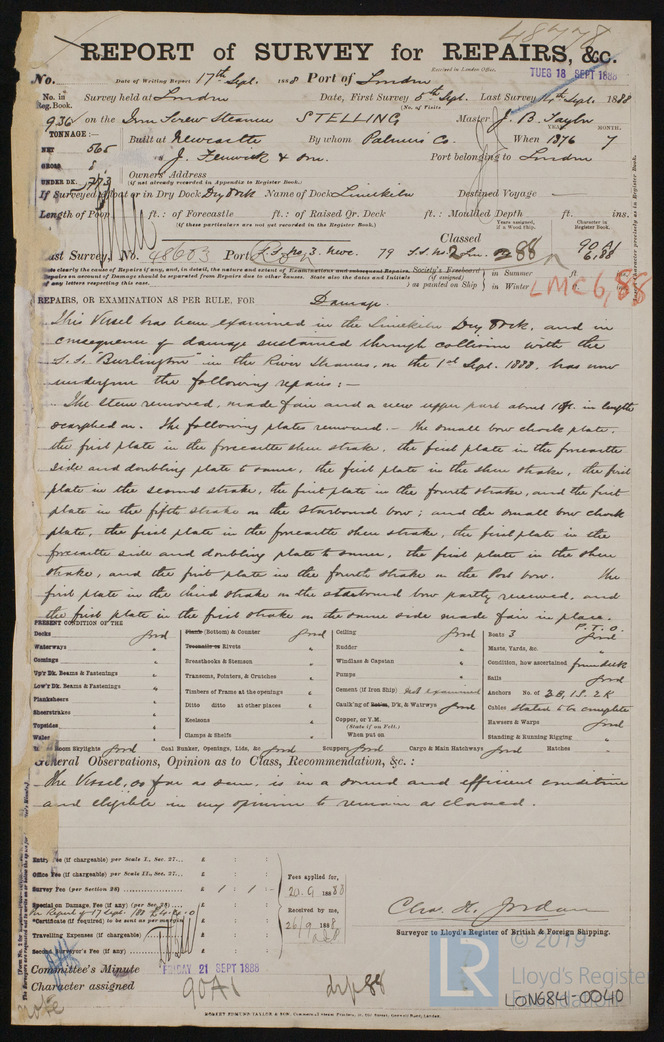 48778
REPORT of SURVEY for REPAIRS, &c.
Received in London Office.
No. Date of Writing Report 17th Sept. 1888 Port of London TUES 18 SEPT 1888
No. in Reg. Book. Survey held at London Date, First Survey 8th Sept. Last Survey 14th Sept. 1888
(No. of Visits
936 on the Iron Screw Steamer STELLING Master J. B. Taylor
TONNAGE:— YEAR MONTH.
NET 565 Built at Newcastle By whom Palmers Co. When 1876 7
GROSS Owners J. Fenwick & Son. Port belonging to London
UNDER DK. 773 Owners' Address
(if not already recorded in Appendix to Register Book.)
If Surveyed Afloat or in Dry Dock Dry Dock Name of Dock Limekiln Destined Voyage —
Length of Poop ft.: of Forecastle ft.: of Raised Qr. Deck ft.: Moulded Depth ft. ins.
(if these particulars are not yet recorded in the Register Book.)
Classed
Last Survey, No. 48603 Port 90A1
6,88
Society's Freeboard (if assigned) as painted on Ship in Summer ft.
in Winter
LMC 6,88
REPAIRS, OR EXAMINATION AS PER RULE, FOR Damage.
This Vessel has been examined in the Limekiln Dry Dock, and in
consequence of damage sustained through collision with the
S.S. "Burlington" in the River Thames, on the 1st Sept. 1888, has now
undergone the following repairs:—
The stem removed, made fair and a new upper part about 10ft. in length
scarphed on. The following plates renewed.— the small bow chock plate,
the first plate in the forecastle sheer strake, the first plate in the forecastle
side and doubling plate to same, the first plate in the sheer strake, the first
plate in the second strake, the first plate in the fourth strake, and the first
plate in the fifth strake on the starboard bow; and the small bow chock
plate, the first plate in the forecastle sheer strake, the first plate in the
forecastle side and doubling plate to same, the first plate in the sheer
strake, and the first plate in the fourth strake on the Port bow. The
first plate in the third strake on the starboard bow partly renewed, and
the first plate in the first strake on the same side made fair in place.
P.T.O.
PRESENT CONDITION OF THE
Decks good
Waterways "
Comings "
Up'r Dk. Beams & Fastenings "
Low'r Dk. Beams & Fastenings "
Planksheers "
Sheerstrakes "
Topsides "
Wales "
Plank (Bottom) & Counter good
Treenails or Rivets "
Breasthooks & Stemson "
Transoms, Pointers, & Crutches "
Timbers of Frame at the openings "
Ditto ditto at other places "
Keelsons "
Clamps & Shelfs "
Ceiling good
Rudder "
Windlass & Capstan "
Pumps "
Cement (if Iron Ship) not examined
Caulk'ng of Bottom, D'k, & Watrwys good
Copper, or Y.M.
(State if on Felt.)
When put on
Boats 3 good
Masts, Yards, &c. "
Condition, how ascertained from deck
Sails good
Anchors No. of 3B, 1S. 2K
Cables stated to be complete
Hawsers & Warps good
Standing & Running Rigging "
Room Skylights good Coal Bunker, Openings, Lids, &c good Scuppers good Cargo & Main Hatchways good Hatches "
General Observations, Opinion as to Class, Recommendation, &c.:
The Vessel, as far as seen, is in a sound and efficient condition
and eligible in my opinion to remain as classed.
Entry Fee (if chargeable) per Scale I., Sec. 27... £ : :
Office Fee (if chargeable) per Scale II., Sec. 27... £ : :
Survey Fee (per Section 28) £ 1 : 1 :
Special on Damage, Fee (if any) (per Sec. 28)... £ : :
*Certificate (if required) to be sent as per margin
Travelling Expenses (if chargeable) £ : :
Second Surveyor's Fee (if any) £ : :
Fees applied for,
20.9.1888
Received by me,
26/9 1888
Chas. H. Jordan
Surveyor to Lloyd's Register of British & Foreign Shipping.
Committee's Minute FRIDAY 21 SEPT 1888
Character assigned 90A1
drp 88
note
LR
© 2019
Lloyd's Register
Foundation
LON684-0040